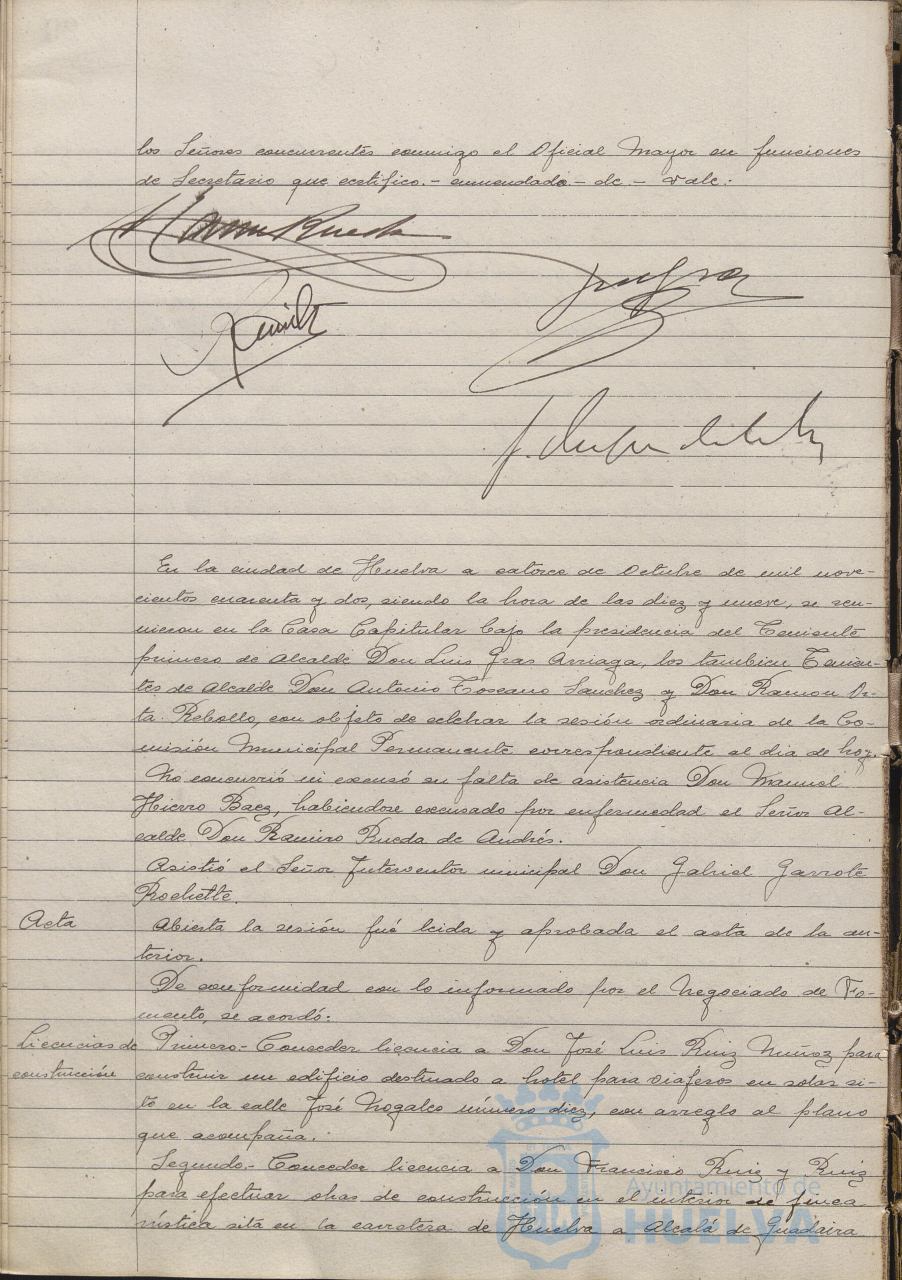 los Señores concurrentes conmigo el Oficial Mayor en funciones
de Secretario que certifico.- enmendado - de - vale:
Ramiro Rueda
En la ciudad de Huelva a catorce de Octubre de mil nove-
cientos cuarenta y dos, siendo la hora de las diez y nueve, se reu-
nieron en la Casa Capitular bajo la presidencia del Teniente
primero de Alcalde Don Luis Gras Arriaga, los tambien Tenien-
tes de Alcalde Don Antonio Toscano Sanchez y Don Ramon Or-
ta Rebollo, con objeto de celebrar la sesión ordinaria de la Co-
misión Municipal Permanente correspondiente al dia de hoy.
No concurrió ni excusó su falta de asistencia Don Manuel
Hierro Baez, habiendose excusado por enfermedad el Señor Al-
calde Don Ramiro Rueda de Andrés.
Asistió el Señor Interventor municipal Don Gabriel Garrote
Rochette.
Acta
Abierta la sesión fué leida y aprobada el acta de la an-
terior.
De conformidad con lo informado por el Negociado de Fo-
mento, se acordó:
Licencias de
construcción
Primero.- Conceder licencia a Don José Luis Ruiz Muñoz para
construir un edificio destinado a hotel para viajeros en solar si-
to en la calle José Nogales número diez, con arreglo al plano
que acompaña.
Segundo.- Conceder licencia a Don Francisco Ruiz y Ruiz
para efectuar obras de construcción en el interior de finca
rústica sita en la carretera de Huelva a Alcalá de Guadaira
Ayuntamiento de
HUELVA